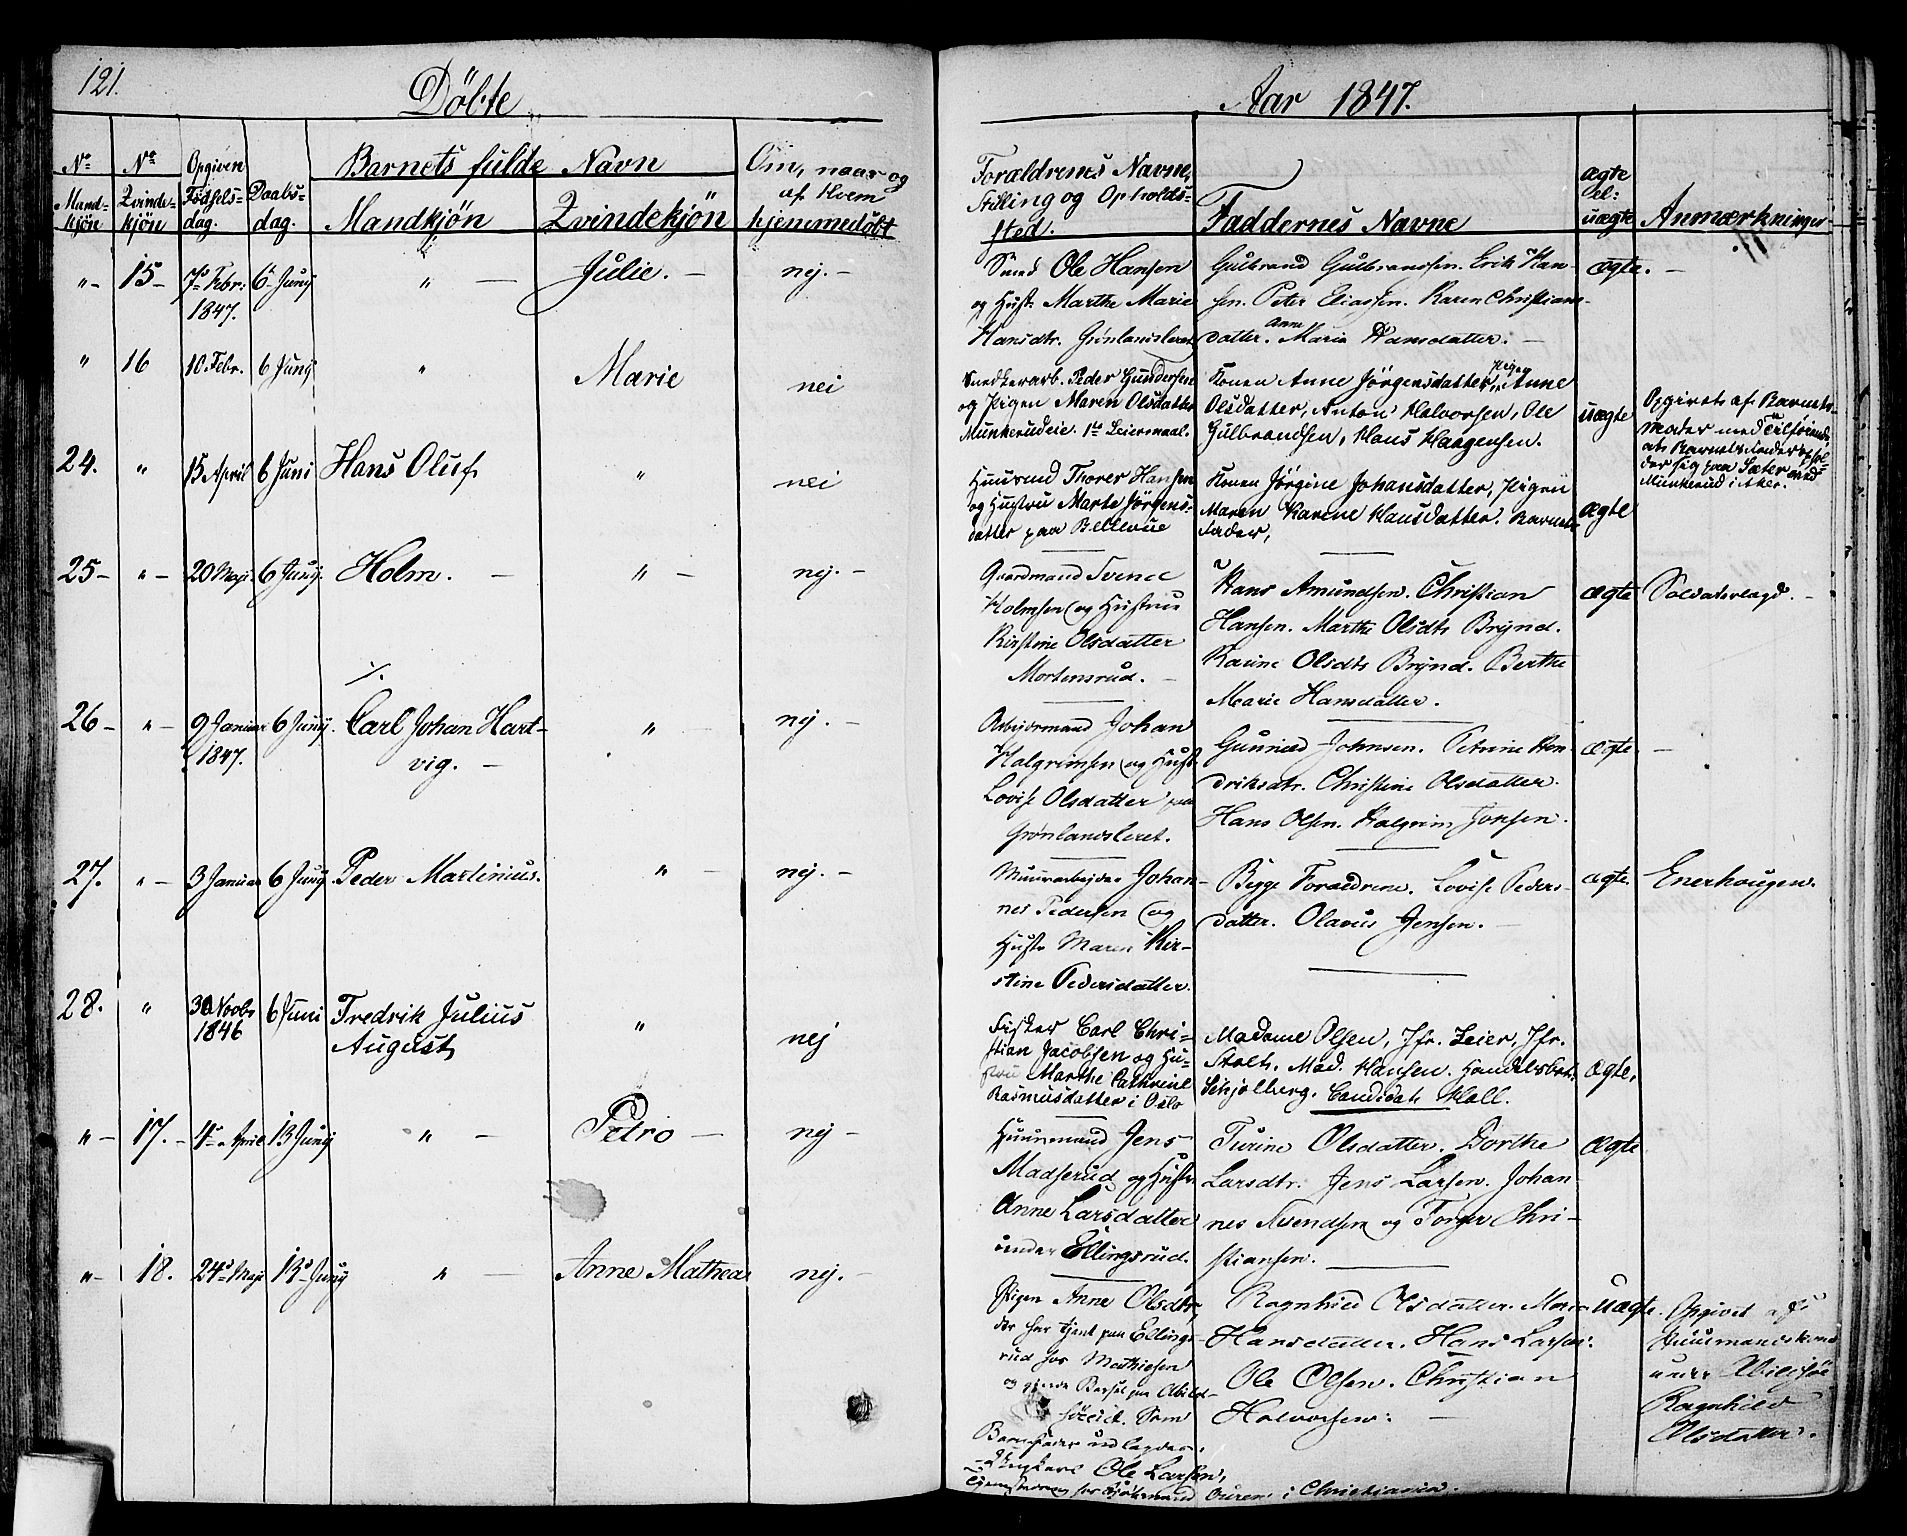 121.
Döbte
Aar 1847.
No
Mand-
kjön
No
Qvinde-
kjön
Opgiven
Födsels-
dag.
Daabs-
dag.
Barnets fulde Navn
Mandkjön
Qvindekjön
Om, naar og
af Hvem
hjemmedöbt
Forældrenes Navne,
Stilling og Opholds-
sted.
Faddernes Navne
ægte
el:
uægte
Anmærkninger
"- 15- 7de Febr: 6 Junij " — Julie. — nej. —
1847.
Smed Ole Hansen
og Hust: Marthe Marie
Hansdtr. Grönlandsleret
Gulbrand Gulbrandsen. Erik Han-
sen. Peter Eliassen. Karen Christians-
datter. Anne Maria Hansdatter. —
ægte. —
" 16 10 Febr. 6 Junij " Marie nei
Snedkerarb. Peder Gundersen
og Pigen Maren Olsdatter
Munkerudeie. 1te Leiermaal.
Konen Anne Jörgensdatter, Pigen Anne
Olsdatter, Anton Halvorsen, Ole
Gulbrandsen, Hans Haagensen.
uægte
Opgivet af Barnets
Moder med Tilföiende
at Barnets Fader ophol-
der sig paa Sæter ved
Munkerud i Aker.
24. " 15 April 6 Juni Hans Oluf " nei
Huusmd Thorer Hansen
og Hustru Marte Jörgens-
datter paa Bellevue
Konen Jörgine Johansdatter, Pigen
Maren Karine Hansdatter. Barnets
Fader,
ægte
25- "- 20 Maji 6 Junij. Holm. — " - nej. —
Gaardmand Svend
Holmsen og Hustru
Kirstine Olsdatter
Mortensrud. —
Hans Amundsen. Christian
Hansen. Marthe Olsdtr Brÿnd.
Karine Olsdtr Brÿnd. Berthe
Marie Hansdatter.
ægte
Soldaterlagd. —
./.
26- "- 9 Januar 6 Junij. Carl Johan Hart- " - nej. —
1847. vig. —
Arbejdsmand Johan
Halgrimsen og Hust.
Lovise Olsdatter paa
Grönlandsleret.
Gunnild Johnsen. Petrine Hen-
driksdtr. Christine Olsdatter.
Hans Olsen. Halgrim Jonsen.
ægte. —
27. "- 3 Januar 6 Junij Peder Martinius. " - nej. —
Muurarbejder Johan-
nes Pedersen og
Hustr Maren Kir-
stine Pedersdatter.
Begge Forældrene. Lovise Peders-
datter. Olavus Jensen. —
ægte.
Enerhougen.
28. " 30 Novbr 6 Juni Fredrik Julius " nej
1846 August
Fisker Carl Chri-
stian Jacobsen og Hu-
stru Marthe Cathrine
Rasmusdatter i Oslo
Madame Olsen, Jfr. Leier, Jfr.
Stolt. Mad. Hansen. Handelsbet.
Schjolberg. Candidat Kall.
ægte,
"- 17. - 4de April 13 Junij " - Petro — nej —
Huusmand Jens
Madserud og Hustr.
Anne Larsdatter
under Ellingsrud.
Turine Olsdatter. Dorthe
Larsdtr. Jens Larsen. Johan-
nes Svendsen og Torger Chri-
stiansen.
ægte
"- 18. 24de Maji 13de Junij " — Anne Mathea nej. —
Pigen Anne Olsdtr,
der har tjent paa Ellings-
rud hos Mathiesen
og gjorde Barsel paa Abild-
söeiet. Som
Barnefader udlagdes
Ungkarl Ole Larsen,
i Christiania.
Ragnhild Olsdatter. Maria
Hansdatter. Hans Larsen:
Ole Olsen. Christian
Halvorsen: —
uægte.
Opgivet af
Huusmandskone
under Abildsöe
Ragnhild
Olsdatter.